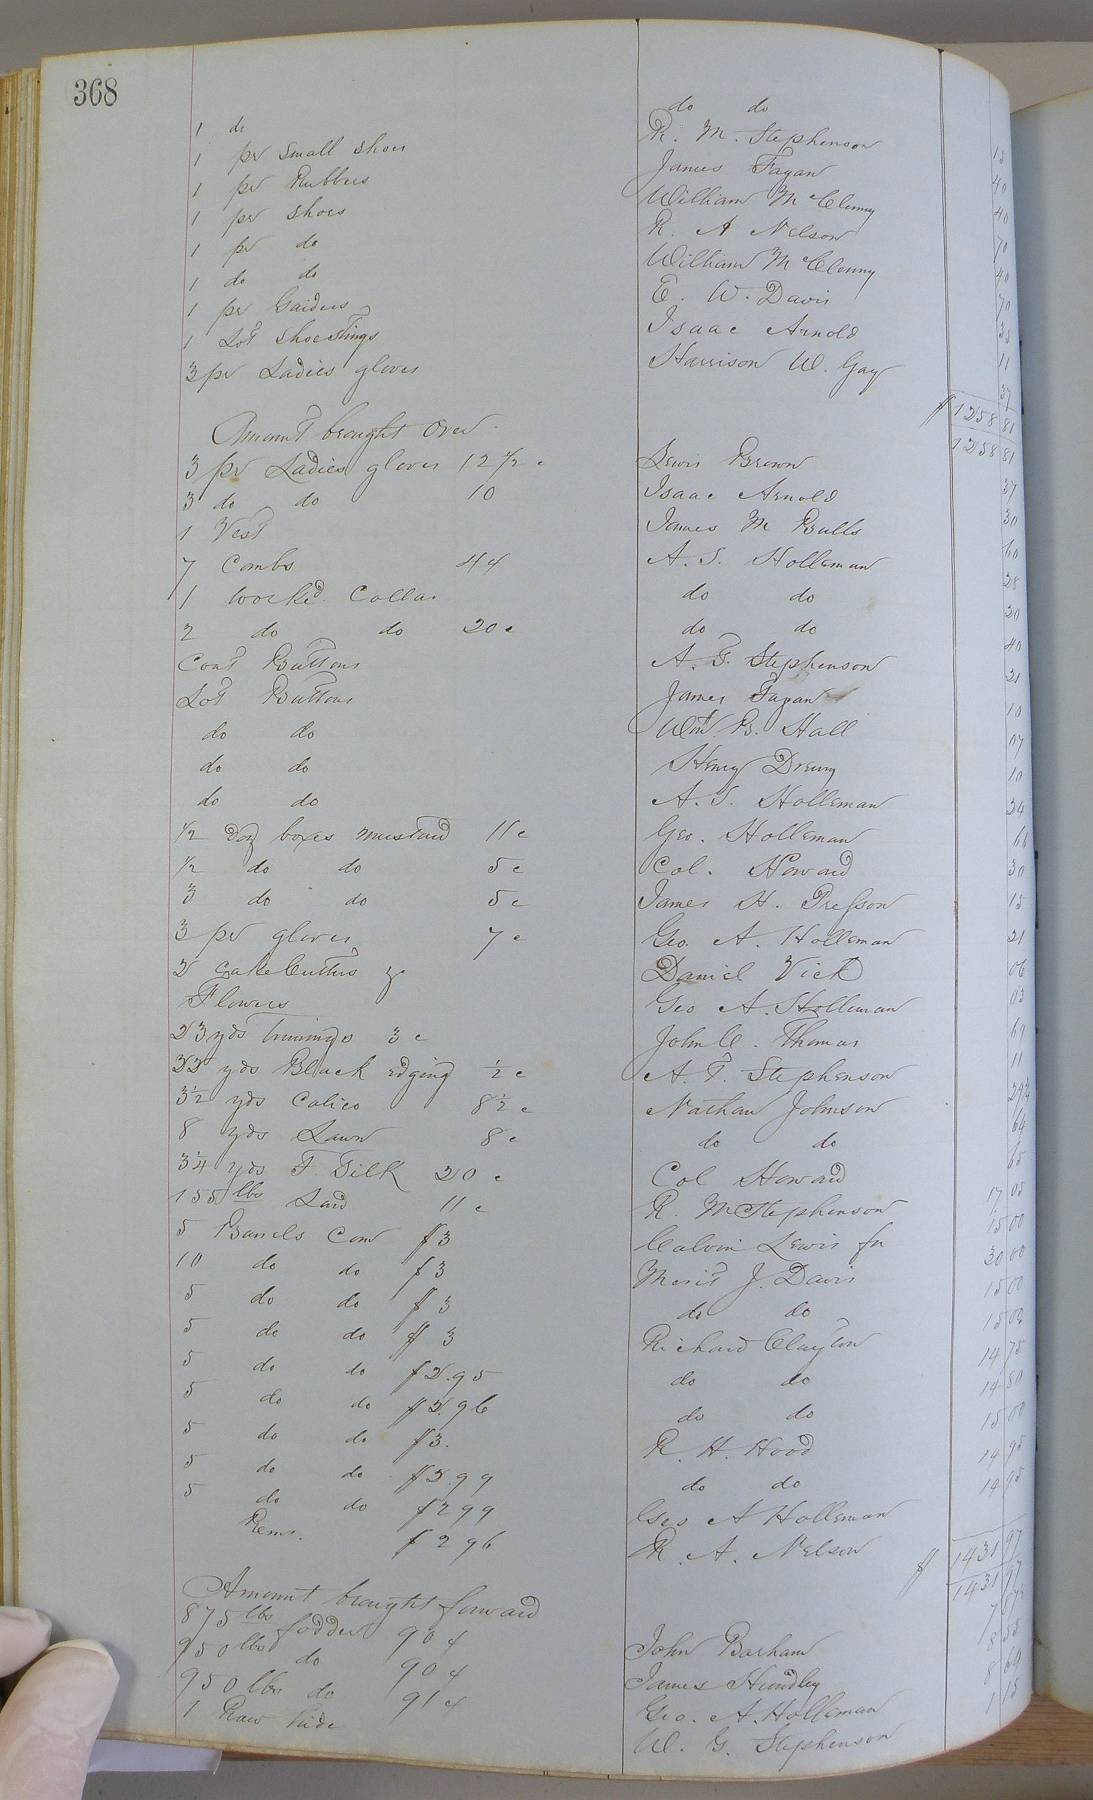 368
1 do do do
1 pr Small Shoes R. M. Stephenson 15
1 pr Rubbers James Fagan 40
1 pr Shoes William McClenny 40
1 pr do R. A Nelson 70
1 do do William McClenny 40
1 pr Gaiders E. W. Davis 70
1 Lot Shoestrings Isaac Arnold 35
3 pr Ladies gloves Harrison W. Gay 11
37
$ 1258 81
Amount brought over 1258 81
3 pr Ladies gloves 12 1/2 c Lewis Brown 37
3 do do 10 Isaac Arnold 30
1 Vest James M Bulls 60
7 Combs 4 4 A. S. Holleman 28
1 Worked Collar do do 20
2 do do 20 c do do 40
Coat Buttons A. F. Stephenson 21
Lot Buttons James Fagan 10
do do Wm B. Hall 07
do do Henry Drewry 10
do do A. S. Holleman 24
1/2 Doz boxes mustard 11 c Geo. Holleman 66
1/2 do do 5 c Col. Howard 30
3 do do 5 c James H. Presson 15
3 pr gloves 7 c Geo. A. Holleman 21
2 cake Cutters 3 Daniel Vick 06
Flowers Geo A. Holleman 03
23 yds Trimings 3 c John C. Thomas 69
22 yds Black edging 1/2 c A. F. Stephenson 11
3 1/2 yds Calico 8 1/2 c Nathan Johnson 29 3/4
8 yds Lawn 8 c do do 64
3 1/4 yds F. Silk 20 c Col Howard 65
155 lbs Lard 11 c R. M Stephenson 17 05
5 Barrels Corn $3 Calvin Lewis Jr 15 00
10 do do $3 Merit J. Davis 30 00
5 do do $3 do do 15 00
5 do do $3 Richard Clayton 15 00
5 do do $2.95 do do 14 75
5 do do $2.96 do do 14 80
5 do do $3. R. H. Hood 15 00
5 do do $2.99 do do 14 95
5 do do $2 99 Geo A Holleman 14 95
Rem. $2 96 R. A. Nelson
$ 1431 97
Amount brought forward 1431 97
875 lbs fodder 90 c John Barham 7 87 1/2
950 lbs do 90 c James Hundley 8 55
950 lbs do 91 c Geo. A. Holleman 8 64
1 Raw hide W. G. Stephenson 1 15